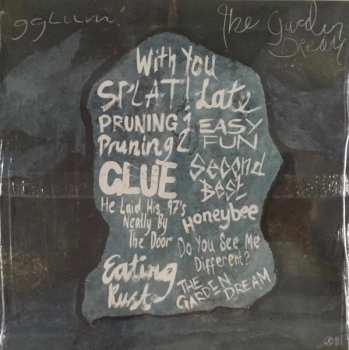 gglum
The Garden
Dream
With You
SPLAT! Late
PRUNING 1 EASY
FUN
Pruning 2
GLUE Second
Best
He Laid His 97's
Neatly By
The Door
Honeybee
Do You See Me
Different?
Eating
Rust
THE
GARDEN DREAM